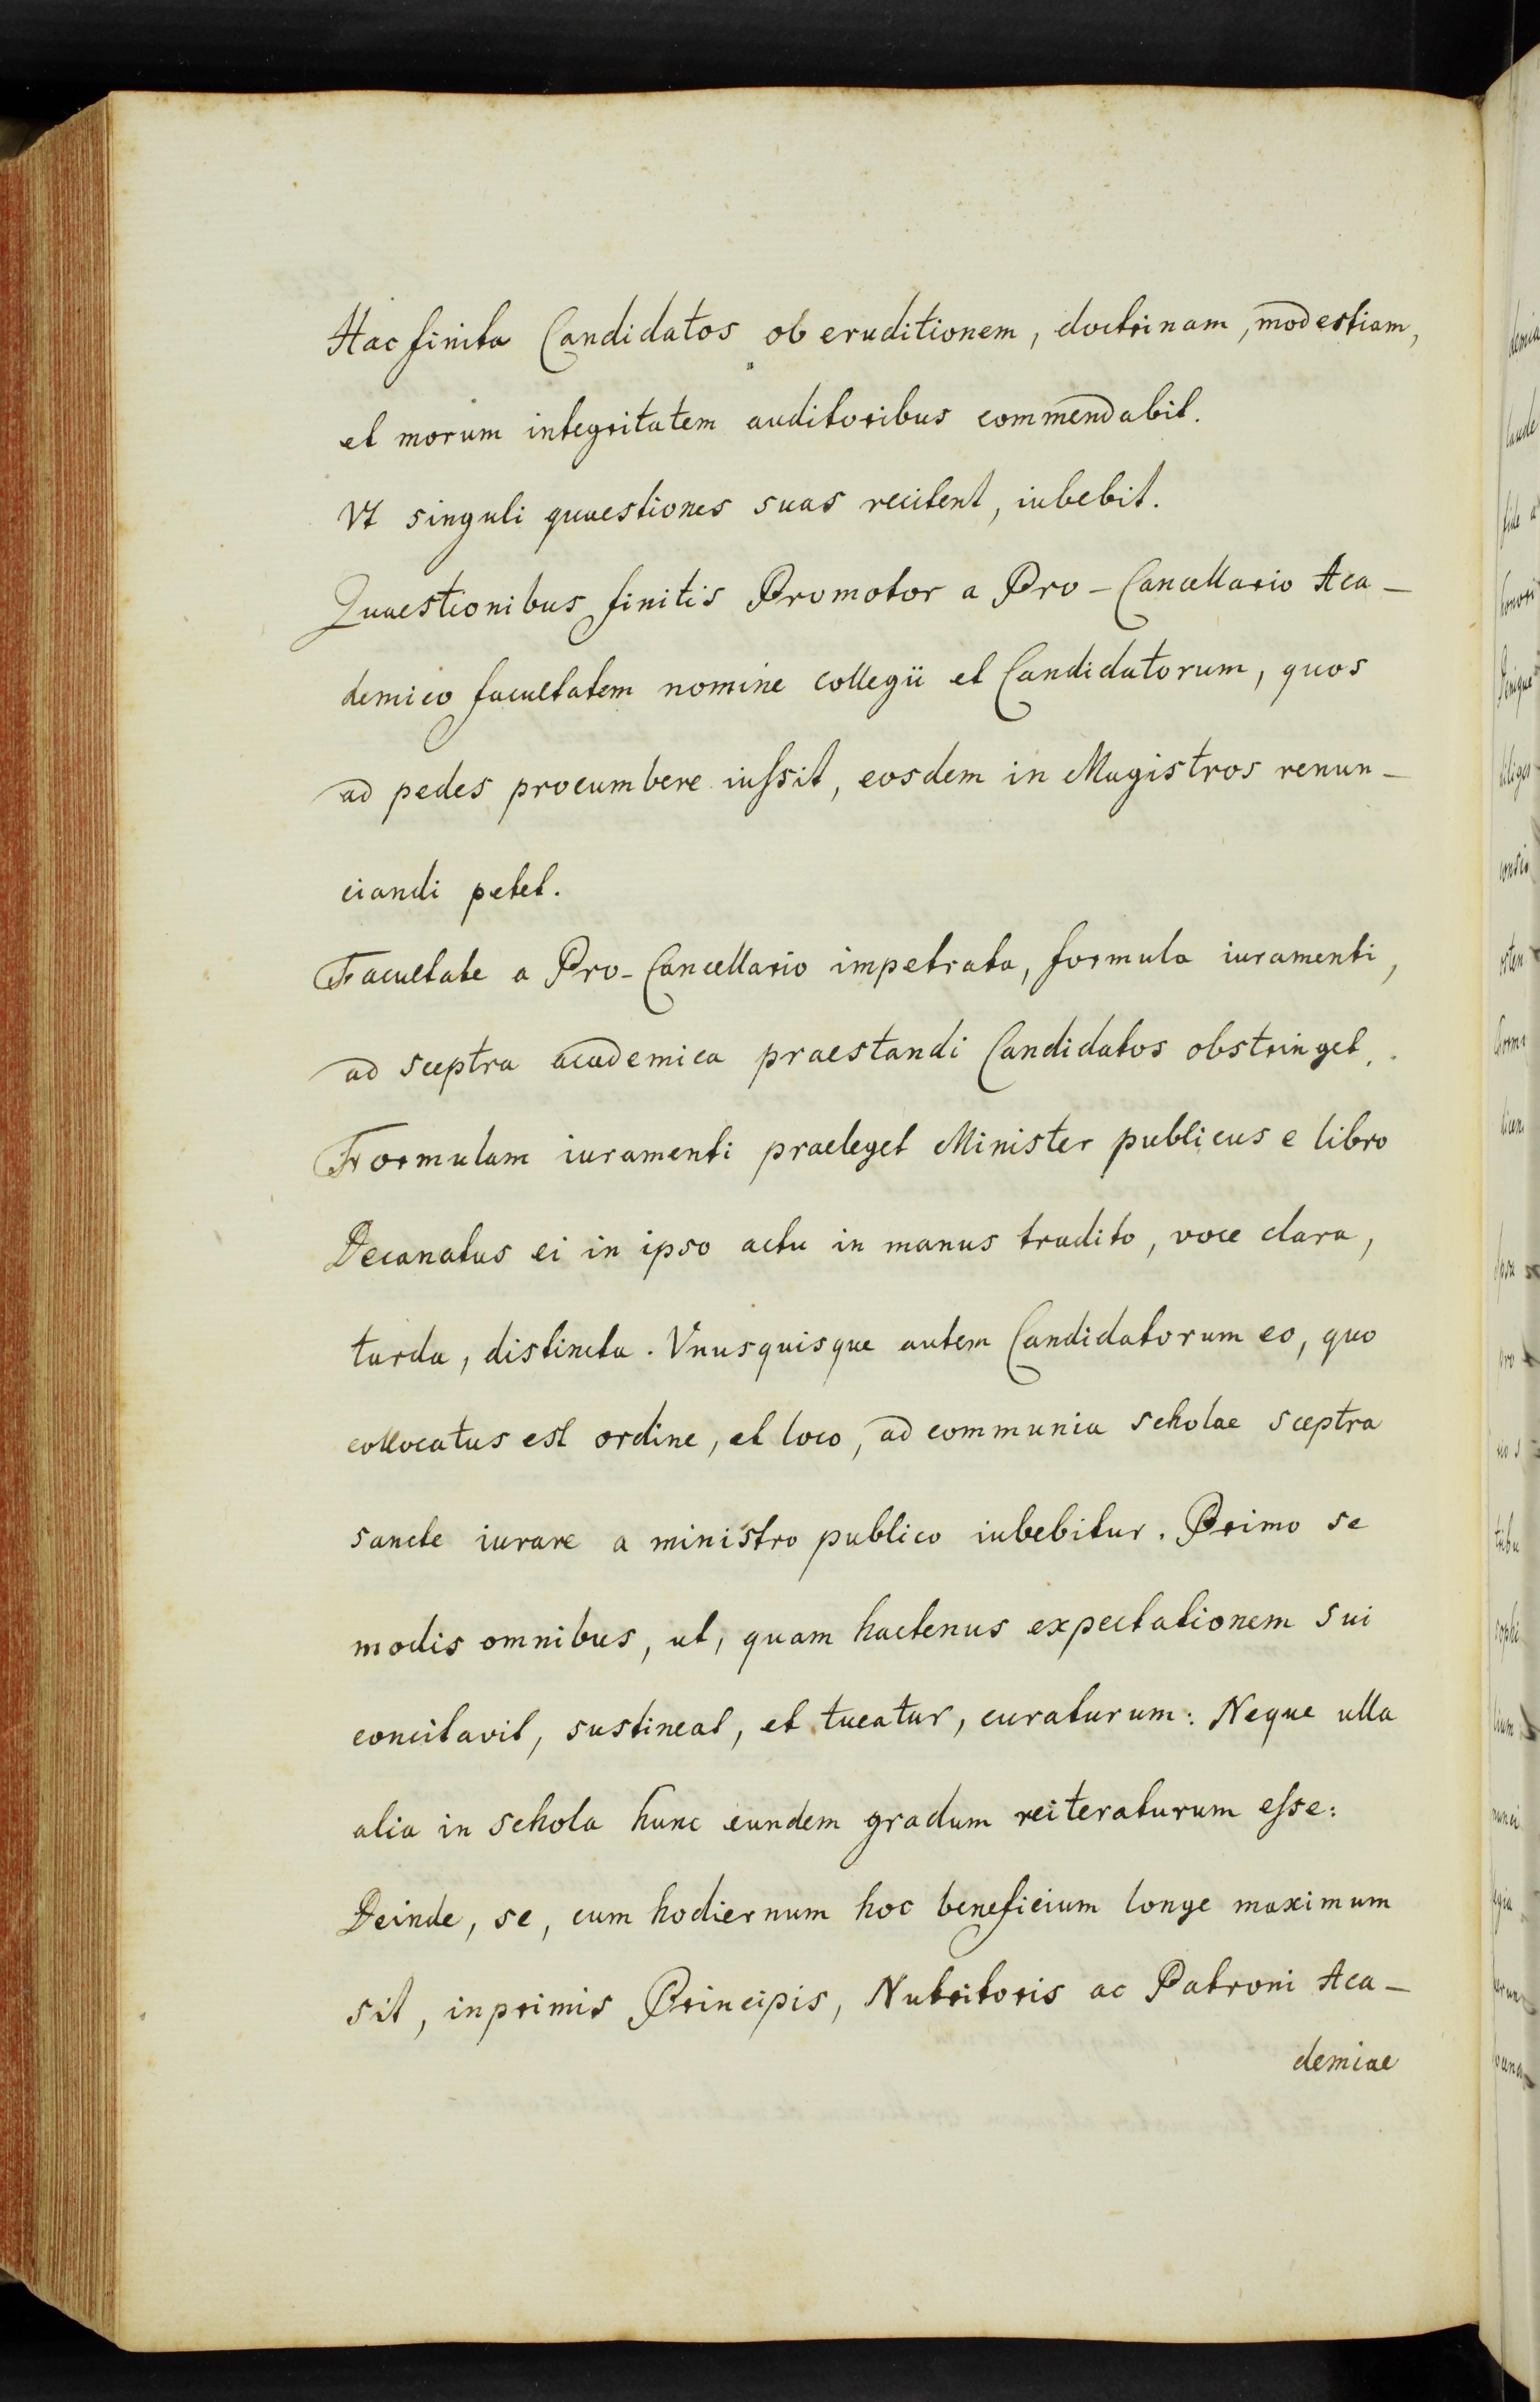 Hac finita Candidatos ob eruditionem, doctrinam, modestiam,
et morum integritatem auditoribus commendabit.
Vt singuli quaestiones suas recitent, iubebit.
Quaestionibus finitis Promotor a Pro-Cancellario Aca-
demico facultatem nomine collegii et Candidatorum, quos
ad pedes procumbere iussit, eosdem in Magistros renun-
ciandi petet.
Facultate a Pro-Cancellario impetrata, formula iuramenti,
ad sceptra academica praestandi Candidatos obstringet.
Formulam iuramenti praeleget Minister publicus e libro
Decanatus ei in ipso actu in manus tradito, voce clara,
tarda, distincta. Vnusquisque autem Candidatorum eo, quo
collocatus est ordine, et loco, ad communia scholae sceptra
sancte iurare a ministro publico iubebitur. Primo se
modis omnibus, ut, quam hactenus expectationem sui
concitavit, sustineat, et tueatur, curaturum: Neque ulla
alia in schola hunc eundem gradum reiteraturum esse:
Deinde, se, cum hodiernum hoc beneficium longe maximum
sit, inprimis Principis, Nutritoris ac Patroni Aca-
demiae